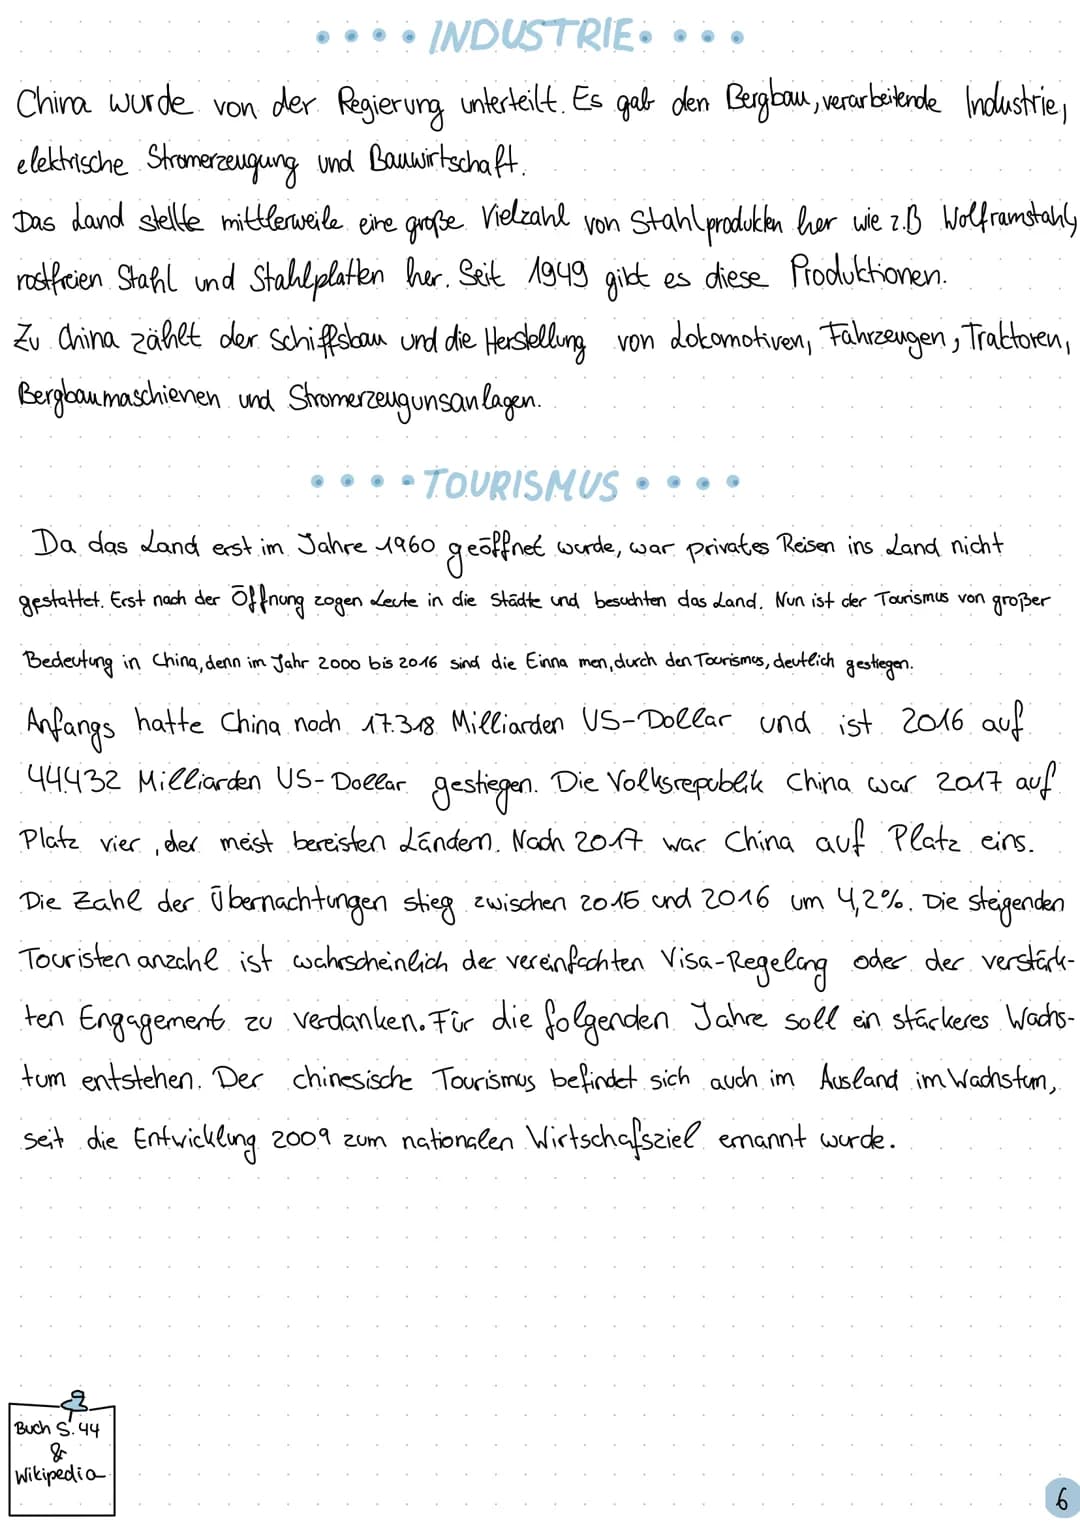 INDUSTRIE
China wurde von der Regierung unterteilt. Es gab den Bergbau, verarbeitende Industrie,
elektrische Stromerzeugung und Bauwirtschaft.
Das Land stellte mittlerweile eine große Vielzahl von Stahlprodukten her wie z.B Wolframstahl,
rostfreien Stahl und Stahlplatten her. Seit 1949 gibt es diese Produktionen.
Zu China zählt der Schiffsbau und die Herstellung von Lokomotiven, Fahrzeugen, Traktoren,
Bergbaumaschienen und Stromerzeugunsanlagen.
TOURISMUS
Da das Land erst im Jahre 1960 geöffnet wurde, war privates Reisen ins Land nicht
gestattet. Erst nach der Öffnung zogen Leute in die Städte und besuchten das Land. Nun ist der Tourismus von großer
Bedeutung in China, denn im Jahr 2000 bis 2016 sind die Einna men, durch den Tourismus, deutlich gestiegen.
Anfangs hatte China noch 17.318 Milliarden US-Dollar und ist 2016 auf
44.432 Milliarden US-Dollar gestiegen. Die Volksrepublik China war 2017 auf
Platz vier, der meist bereisten Ländern. Nach 2017 war China auf Platz eins.
Die Zahl der Übernachtungen stieg zwischen 2015 und 2016 um 4,2%. Die steigenden
Touristenanzahl ist wahrscheinlich der vereinfachten Visa-Regelung oder der verstärk-
ten Engagement zu verdanken. Für die folgenden Jahre soll ein stärkeres Wachs-
tum entstehen. Der chinesische Tourismus befindet sich auch im Ausland im Wachstum,
seit die Entwicklung 2009 zum nationalen Wirtschafsziel ernannt wurde.
Buch S. 44
&
Wikipedia
6